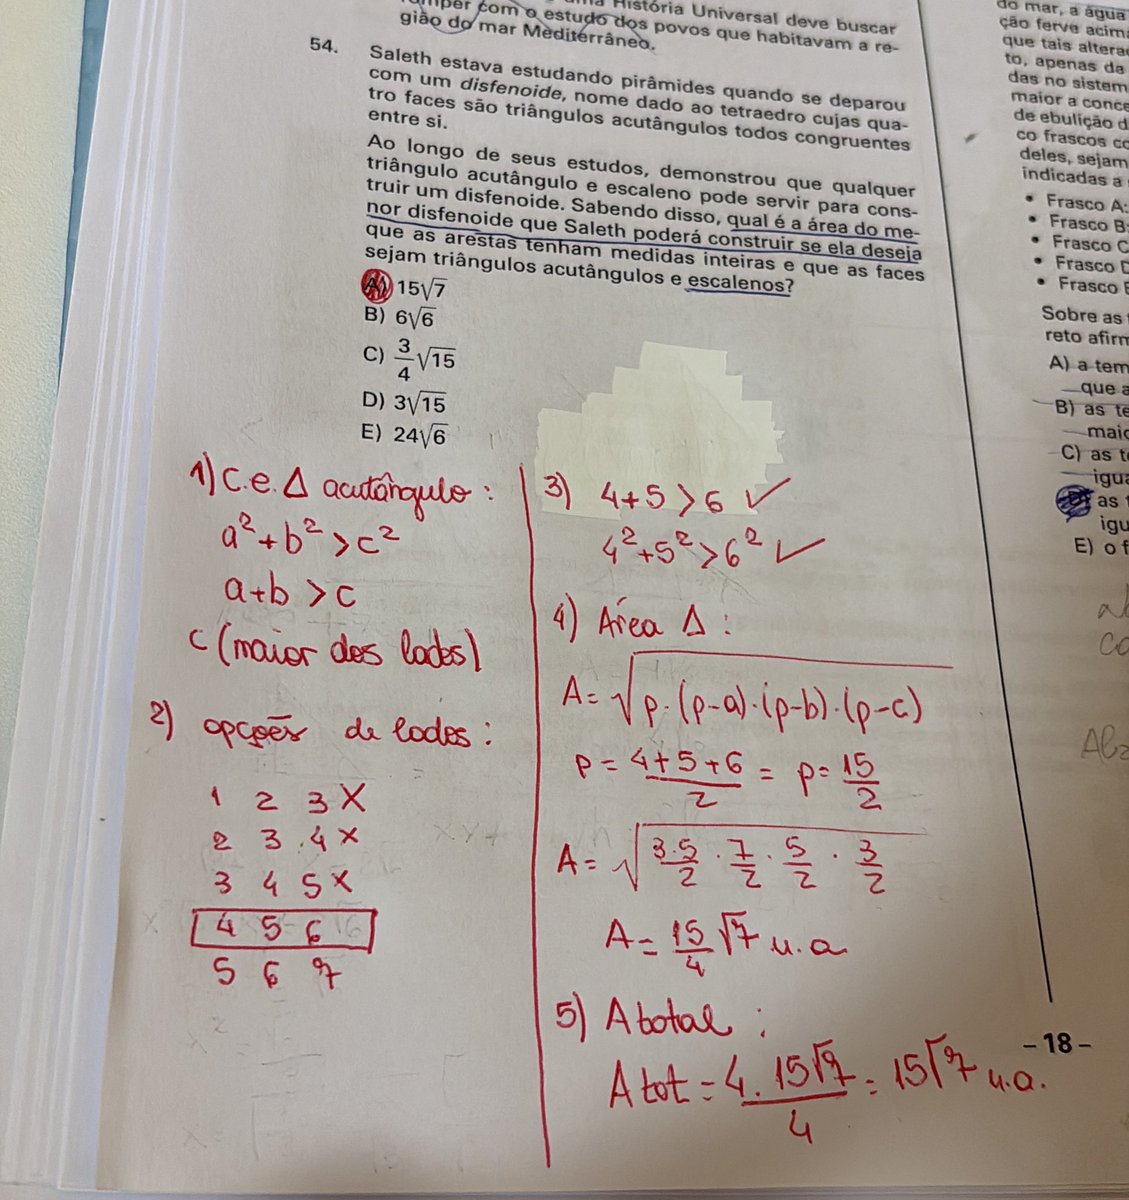 História Universal deve buscar
com o estudo dos povos que habitavam a re-
gião do mar Mediterrâneo.
54. Saleth estava estudando pirâmides quando se deparou
com um disfenoide, nome dado ao tetraedro cujas qua-
tro faces são triângulos acutângulos todos congruentes
entre si.
Ao longo de seus estudos, demonstrou que qualquer
triângulo acutângulo e escaleno pode servir para cons-
truir um disfenoide. Sabendo disso, qual é a área do me-
nor disfenoide que Saleth poderá construir se ela deseja
que as arestas tenham medidas inteiras e que as faces
sejam triângulos acutângulos e escalenos?
A) 15√7
B) 6√6
C) 3/4 √15
D) 3√15
E) 24√6
1) C.e. Δ acutângulo :
a² + b² > c²
a + b > c
c (maior dos lados)
2) opções de lados :
1 2 3 X
2 3 4 X
3 4 5 X
4 5 6
5 6 7
3) 4+5 > 6 ✓
4² + 5² > 6² ✓
4) Área Δ :
A = √p · (p-a) · (p-b) · (p-c)
p = 4+5+6/2 = p = 15/2
A = √3.5/2 · 7/2 · 5/2 · 3/2
A = 15/4 √7 u.a
5) A total :
A tot = 4 . 15√7/4 = 15√7 u.a.
– 18 –
do mar, a água
ção ferve acim
que tais altera
to, apenas da
das no sistem
maior a conce
de ebulição d
co frascos co
deles, sejam
indicadas a
• Frasco A:
• Frasco B:
• Frasco C
• Frasco D
• Frasco E
Sobre as
reto afirm
A) a tem
que a
B) as te
maio
C) as t
igua
as t
igu
E) o f